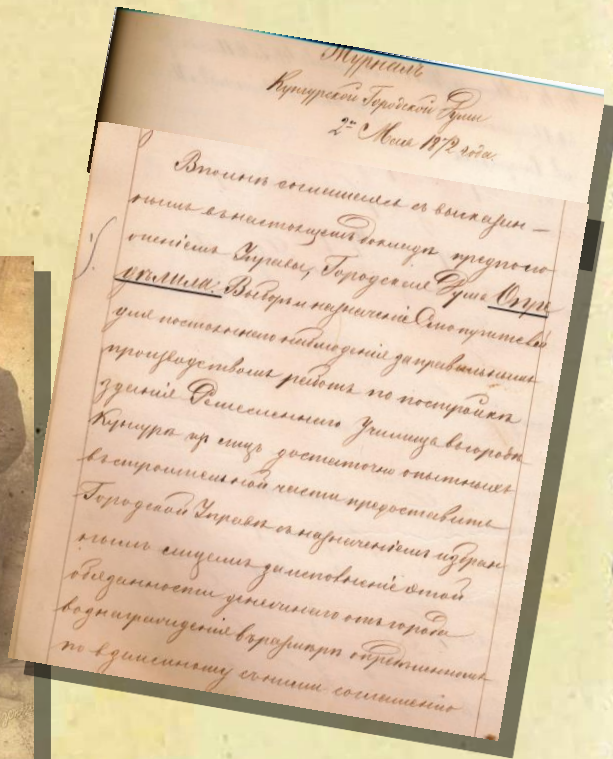 Журналъ
Кунгурской Городской Думы
2го Мая 1872 года.
Вполнѣ соглашаясь съ высказан-
нымъ въ настоящемъ докладѣ предполо
женіемъ Управы, Городская Дума Опре
дѣлила: Выборъ и назначеніе
для постояннаго наблюденія за правильнымъ
производствомъ работъ по постройкѣ
зданія Ремесленнаго Училища въ городѣ
Кунгурѣ изъ лицъ достаточно опытныхъ
въ строительной части предоставить
Городской Управѣ съ назначеніемъ избран
нымъ лицамъ за исполненіе этой
обязанности денежнаго отъ города
вознагражденія въ размѣрѣ опредѣленномъ
по взаимному съ ними соглашенію